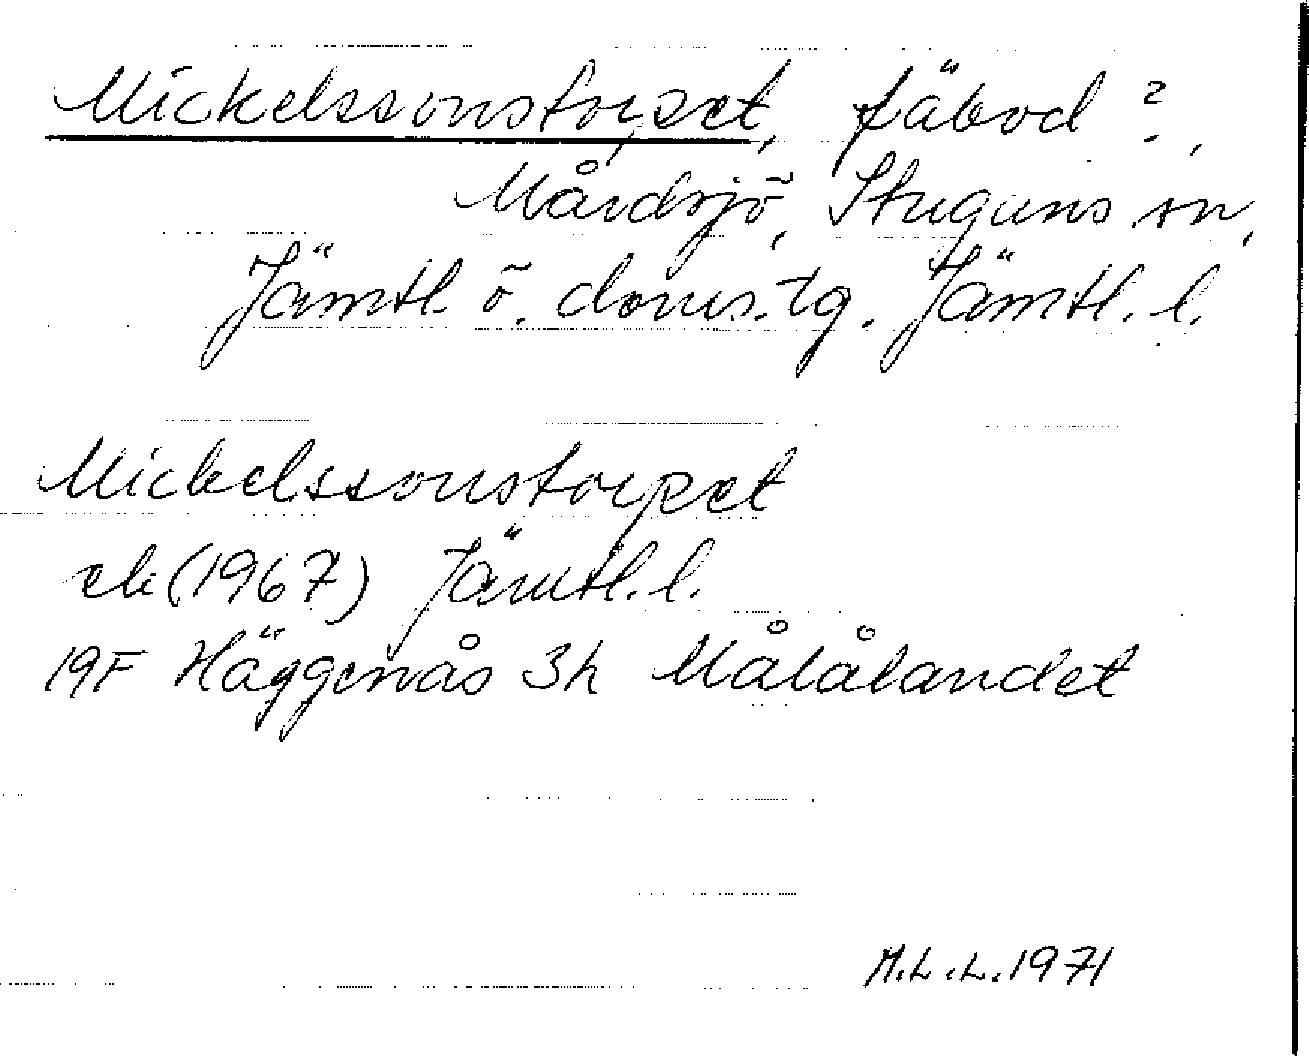 Mickelssonstorpet, fäbod?,
Mårdsjö, Stuguns sn,
Jämtl. ö. doms.tg. Jämtl. l.
Mickelssonstorpet
ek (1967) Jämtl. l.
19F Häggenås 3h Målålandet
M.L.L. 1971